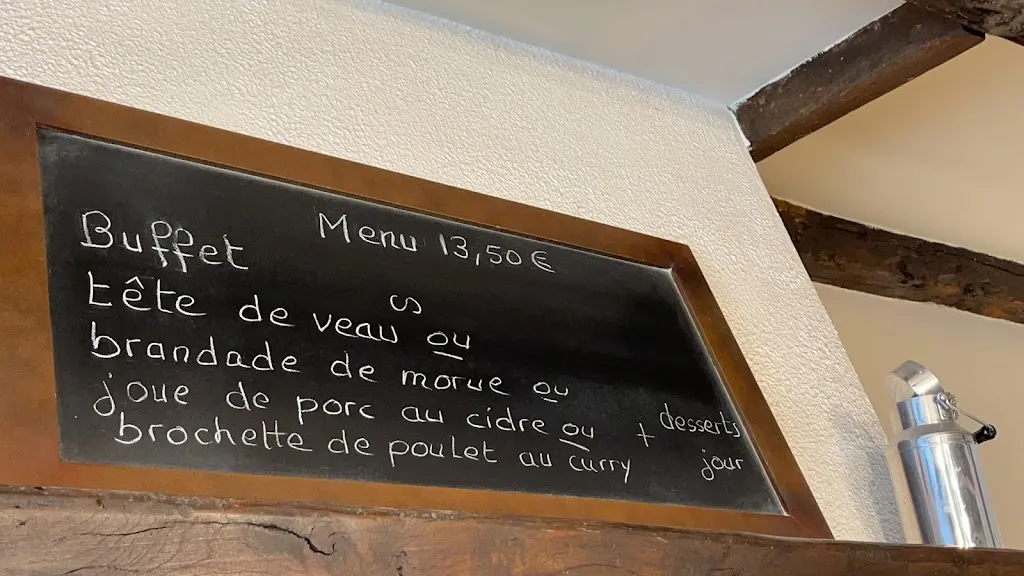 Menu 13,50 €
Buffet
tête de veau ou
brandade de morue ou
joue de porc au cidre ou
brochette de poulet au curry
+ desserts
jour